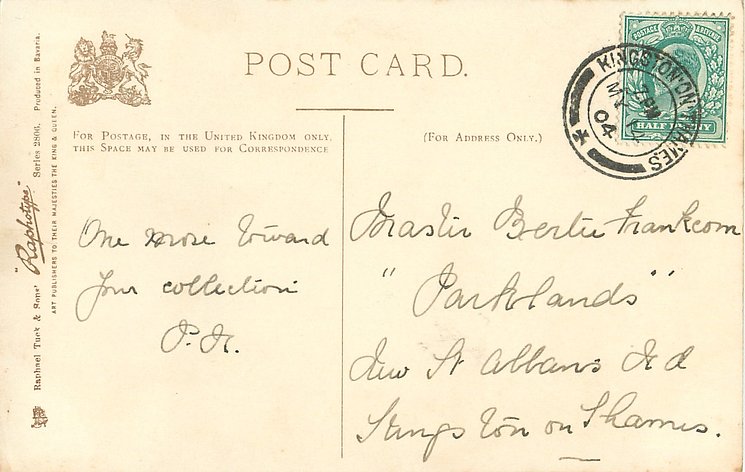 POST CARD.
FOR POSTAGE, IN THE UNITED KINGDOM ONLY,
THIS SPACE MAY BE USED FOR CORRESPONDENCE
(FOR ADDRESS ONLY.)
Raphael Tuck & Sons' "Raphotype" Series 2806. Produced in Bavaria.
ART PUBLISHERS TO THEIR MAJESTIES THE KING & QUEEN.
POSTAGE & REVENUE
HALF PENNY
KINGSTON-ON-THAMES
7 PM
MY
04
One more toward
your collection
Master Bertie Frankcom
"Parklands"
New St Albans Rd
Kingston on Thames.